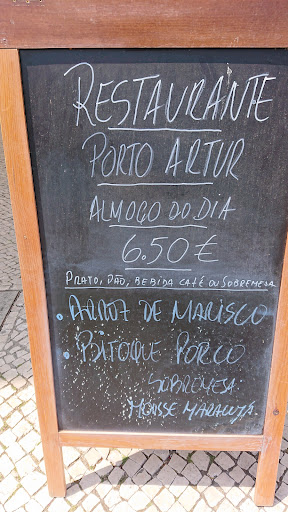 RESTAURANTE
PORTO ARTUR
ALMOÇO DO DIA
6.50 €
PRATO, PÃO, BEBIDA CAFÉ OU SOBREMESA
• ARROZ DE MARISCO
• BITOQUE PORCO
SOBREMESA:
MOUSSE MARACUJÁ.